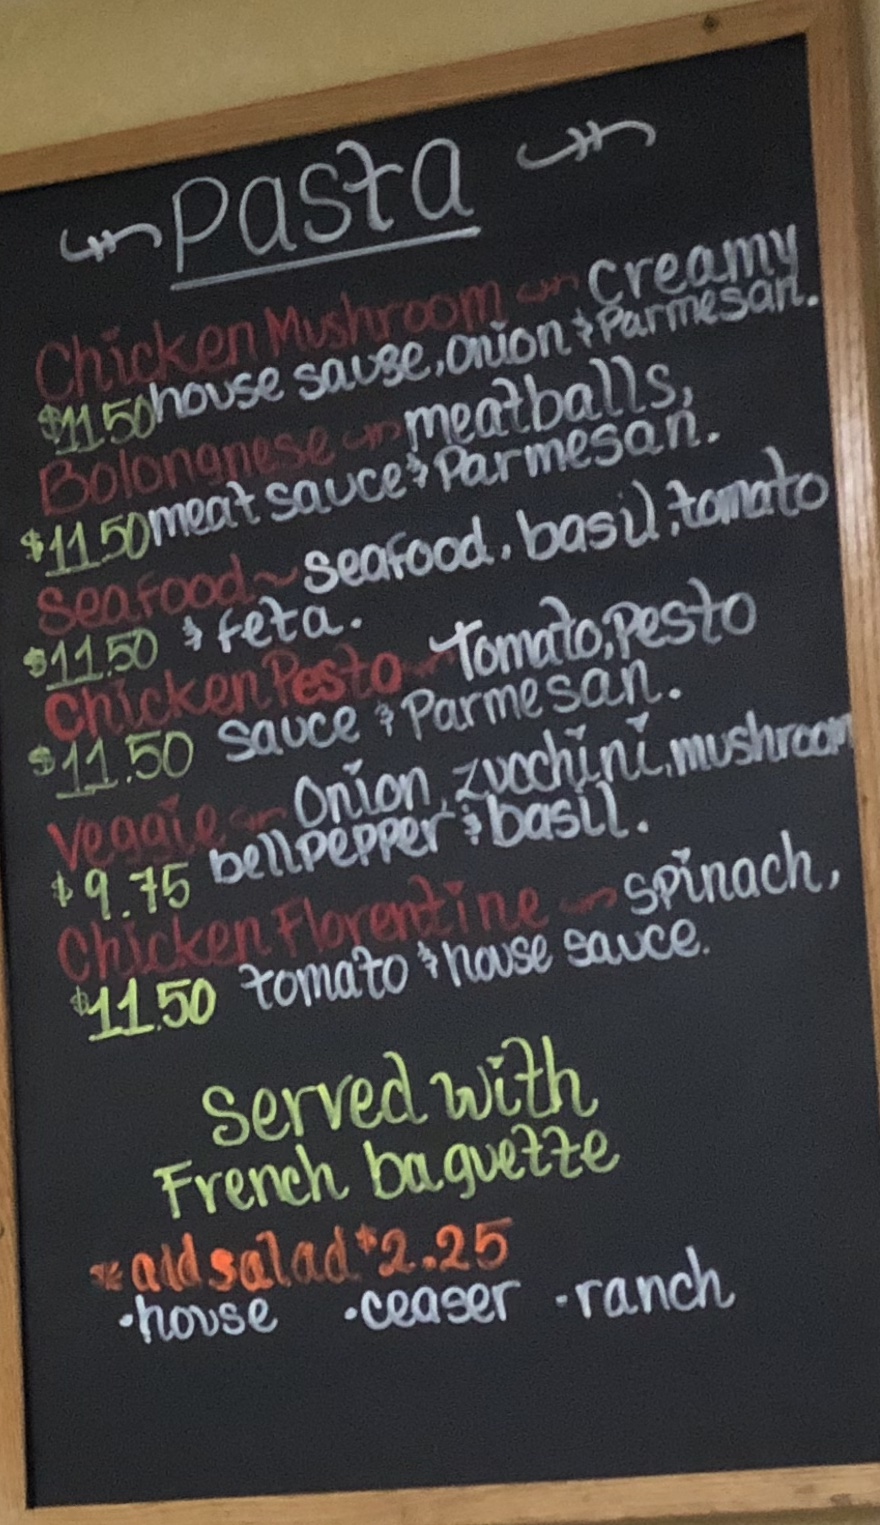 Pasta
Chicken Mushroom ~ Creamy
$11.50 house sause, onion & Parmesan.
Bolongnese ~ meatballs,
$11.50 meat sauce & Parmesan.
Seafood ~ seafood, basil, tomato
$11.50 & feta.
Chicken Pesto ~ Tomato, Pesto
$11.50 sauce & Parmesan.
Veggie ~ Onion, zucchini, mushroom
$9.75 bellpepper & basil.
Chicken Florentine ~ spinach,
$11.50 tomato & house sauce.
Served with
French baguette
* add salad $2.25
• house • ceaser • ranch